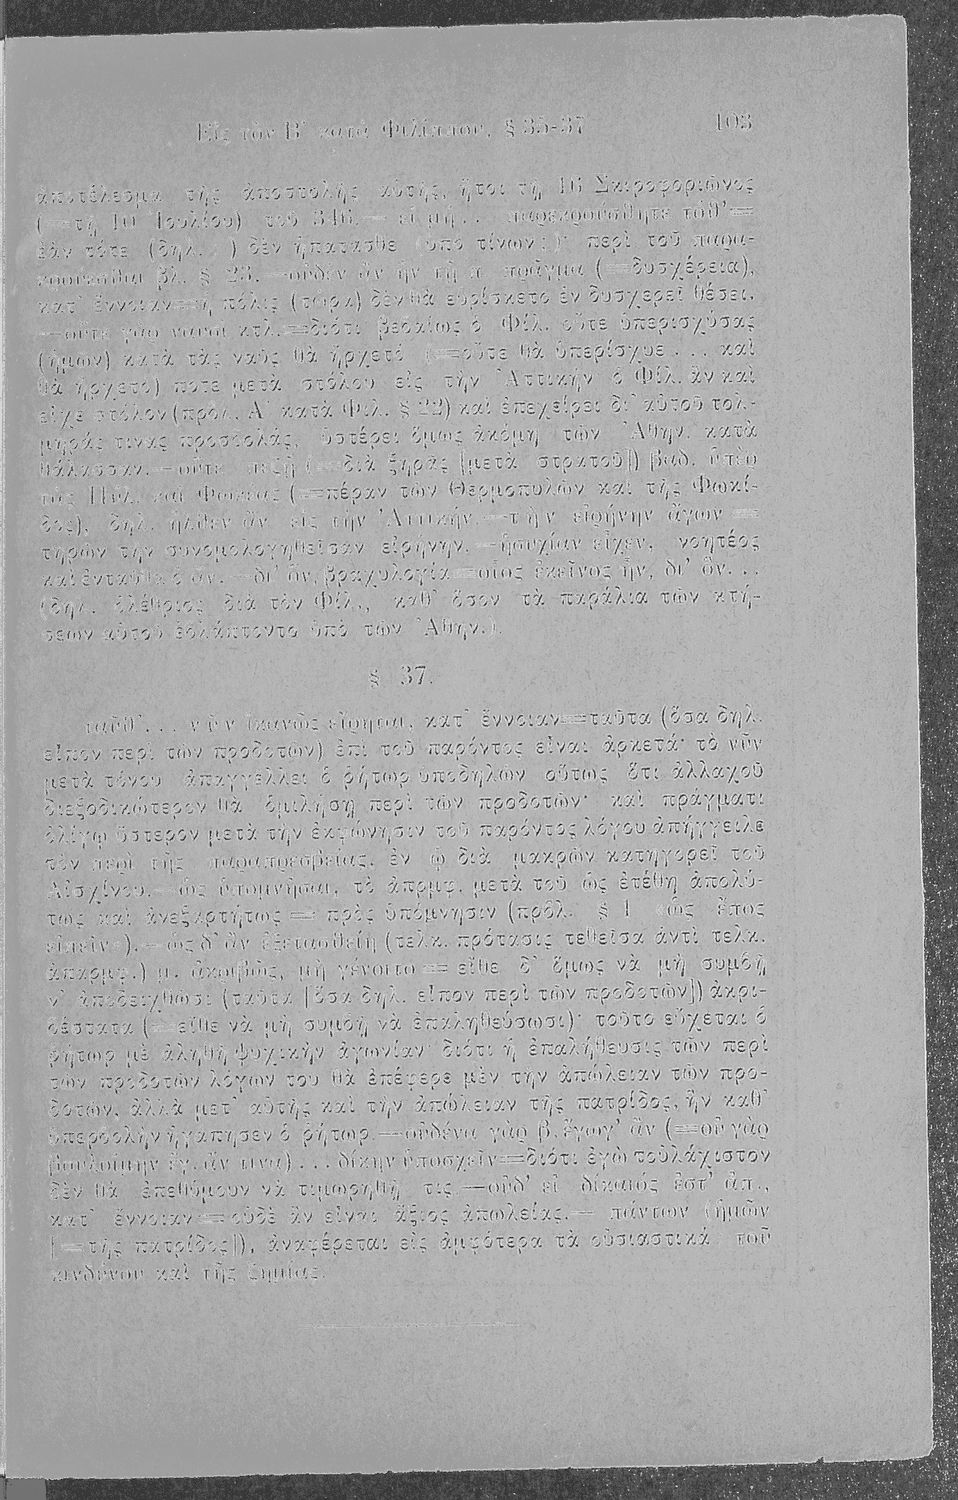 Εἰς τὸν Βʹ κατὰ Φιλίππου, § 35-37 103
ἀποτέλεσμα τῆς ἀποστολῆς αὐτῆς, ἤτοι τῇ 16 Σκιροφοριῶνος
(=τῇ 10 Ἰουλίου) τοῦ 346.— εἰ μὴ.. παρεκρούσθητε τόθ'=
ἐὰν τότε (δηλ. ) δὲν ἠπατᾶσθε (ὑπὸ τίνων;)· περὶ τοῦ παρα-
κρούεσθαι βλ. § 23.—οὐδὲν ἂν ἦν τῇ π. πρᾶγμα (=δυσχέρεια),
κατ' ἔννοιαν=ἡ πόλις (τώρα) δὲν θὰ εὑρίσκετο ἐν δυσχερεῖ θέσει.
—οὔτε γὰρ ναυσὶ κτλ.=διότι βεβαίως ὁ Φίλ. οὔτε ὑπερισχύσας
(ἡμῶν) κατὰ τὰς ναῦς θὰ ἤρχετό (=οὔτε θὰ ὑπερίσχυε ... καὶ
θὰ ἤρχετο) ποτε μετὰ στόλου εἰς τὴν Ἀττικήν· ὁ Φίλ. ἂν καὶ
εἶχε στόλον (πρβλ. Αʹ κατὰ Φιλ. § 22) καὶ ἐπεχείρει δι' αὐτοῦ τολ-
μηράς τινας προσβολάς, ὑστέρει ὅμως ἀκόμη τῶν Ἀθην. κατὰ
θάλασσαν.—οὔτε πεζῇ (=διὰ ξηρᾶς [μετὰ στρατοῦ]) βαδ. ὑπὲρ
τὰς Πύλ. καὶ Φωκέας (=πέραν τῶν Θερμοπυλῶν καὶ τῆς Φωκί-
δος), δηλ. ἦλθεν ἂν εἰς τὴν Ἀττικήν.—τὴν εἰρήνην ἄγων =
τηρῶν τὴν συνομολογηθεῖσαν εἰρήνην.—ἡσυχίαν εἶχεν, νοητέος
καὶ ἐνταῦθα ὁ ἄν.—δι' ὅν, βραχυλογία=οἷος ἐκεῖνος ἦν, δι' ὅν...
(δηλ. ὀλέθριος διὰ τὸν Φίλ., καθ' ὅσον τὰ παράλια τῶν κτή-
σεων αὐτοῦ ἐβλάπτοντο ὑπὸ τῶν Ἀθην.).
§ 37.
ταῦθ'... νῦν ἱκανῶς εἴρηται, κατ' ἔννοιαν=ταῦτα (ὅσα δηλ.
εἶπον περὶ τῶν προδοτῶν) ἐπὶ τοῦ παρόντος εἶναι ἀρκετά· τὸ νῦν
μετὰ τόνου ἀπαγγέλλει ὁ ῥήτωρ ὑποδηλῶν οὕτως ὅτι ἀλλαχοῦ
διεξοδικώτερον θὰ ὁμιλήσῃ περὶ τῶν προδοτῶν· καὶ πράγματι
ὀλίγῳ ὕστερον μετὰ τὴν ἐκφώνησιν τοῦ παρόντος λόγου ἀπήγγειλε
τὸν περὶ τῆς παραπρεσβείας, ἐν ᾧ διὰ μακρῶν κατηγορεῖ τοῦ
Αἰσχίνου.—ὡς ὑπομνῆσαι, τὸ ἀπρμφ. μετὰ τοῦ ὡς ἐτέθη ἀπολύ-
τως καὶ ἀνεξαρτήτως = πρὸς ὑπόμνησιν (πρβλ. § 1 «ὡς ἔπος
εἰπεῖν»).—ὡς δ' ἂν ἐξετασθείη (τελκ. πρότασις τεθεῖσα ἀντὶ τελκ.
ἀπαρμφ.) μ. ἀκριβῶς, μὴ γένοιτο = εἴθε δ' ὅμως νὰ μὴ συμβῇ
ν' ἀποδειχθῶσι (ταῦτα [ὅσα δηλ. εἶπον περὶ τῶν προδοτῶν]) ἀκρι-
βέστατα (=εἴθε νὰ μὴ συμβῇ νὰ ἐπαληθεύσωσι)· τοῦτο εὔχεται ὁ
ῥήτωρ μὲ ἀληθῆ ψυχικὴν ἀγωνίαν· διότι ἡ ἐπαλήθευσις τῶν περὶ
τῶν προδοτῶν λόγων του θὰ ἐπέφερε μὲν τὴν ἀπώλειαν τῶν προ-
δοτῶν, ἀλλὰ μετ' αὐτῆς καὶ τὴν ἀπώλειαν τῆς πατρίδος, ἣν καθ'
ὑπερβολὴν ἠγάπησεν ὁ ῥήτωρ.—οὐδένα γὰρ β. ἔγωγ' ἂν (=οὐ γὰρ
βουλοίμην ἔγ. ἄν τινα)... δίκην ὑποσχεῖν=διότι ἐγὼ τοὐλάχιστον
δὲν θὰ ἐπεθύμουν νὰ τιμωρηθῇ τις.—οὐδ' εἰ δίκαιός ἐστ' ἀπ.,
κατ' ἔννοιαν=οὐδὲ ἂν εἶναι ἄξιος ἀπωλείας.— πάντων (ἡμῶν
[=τῆς πατρίδος]), ἀναφέρεται εἰς ἀμφότερα τὰ οὐσιαστικά: τοῦ
κινδύνου καὶ τῆς ζημίας.